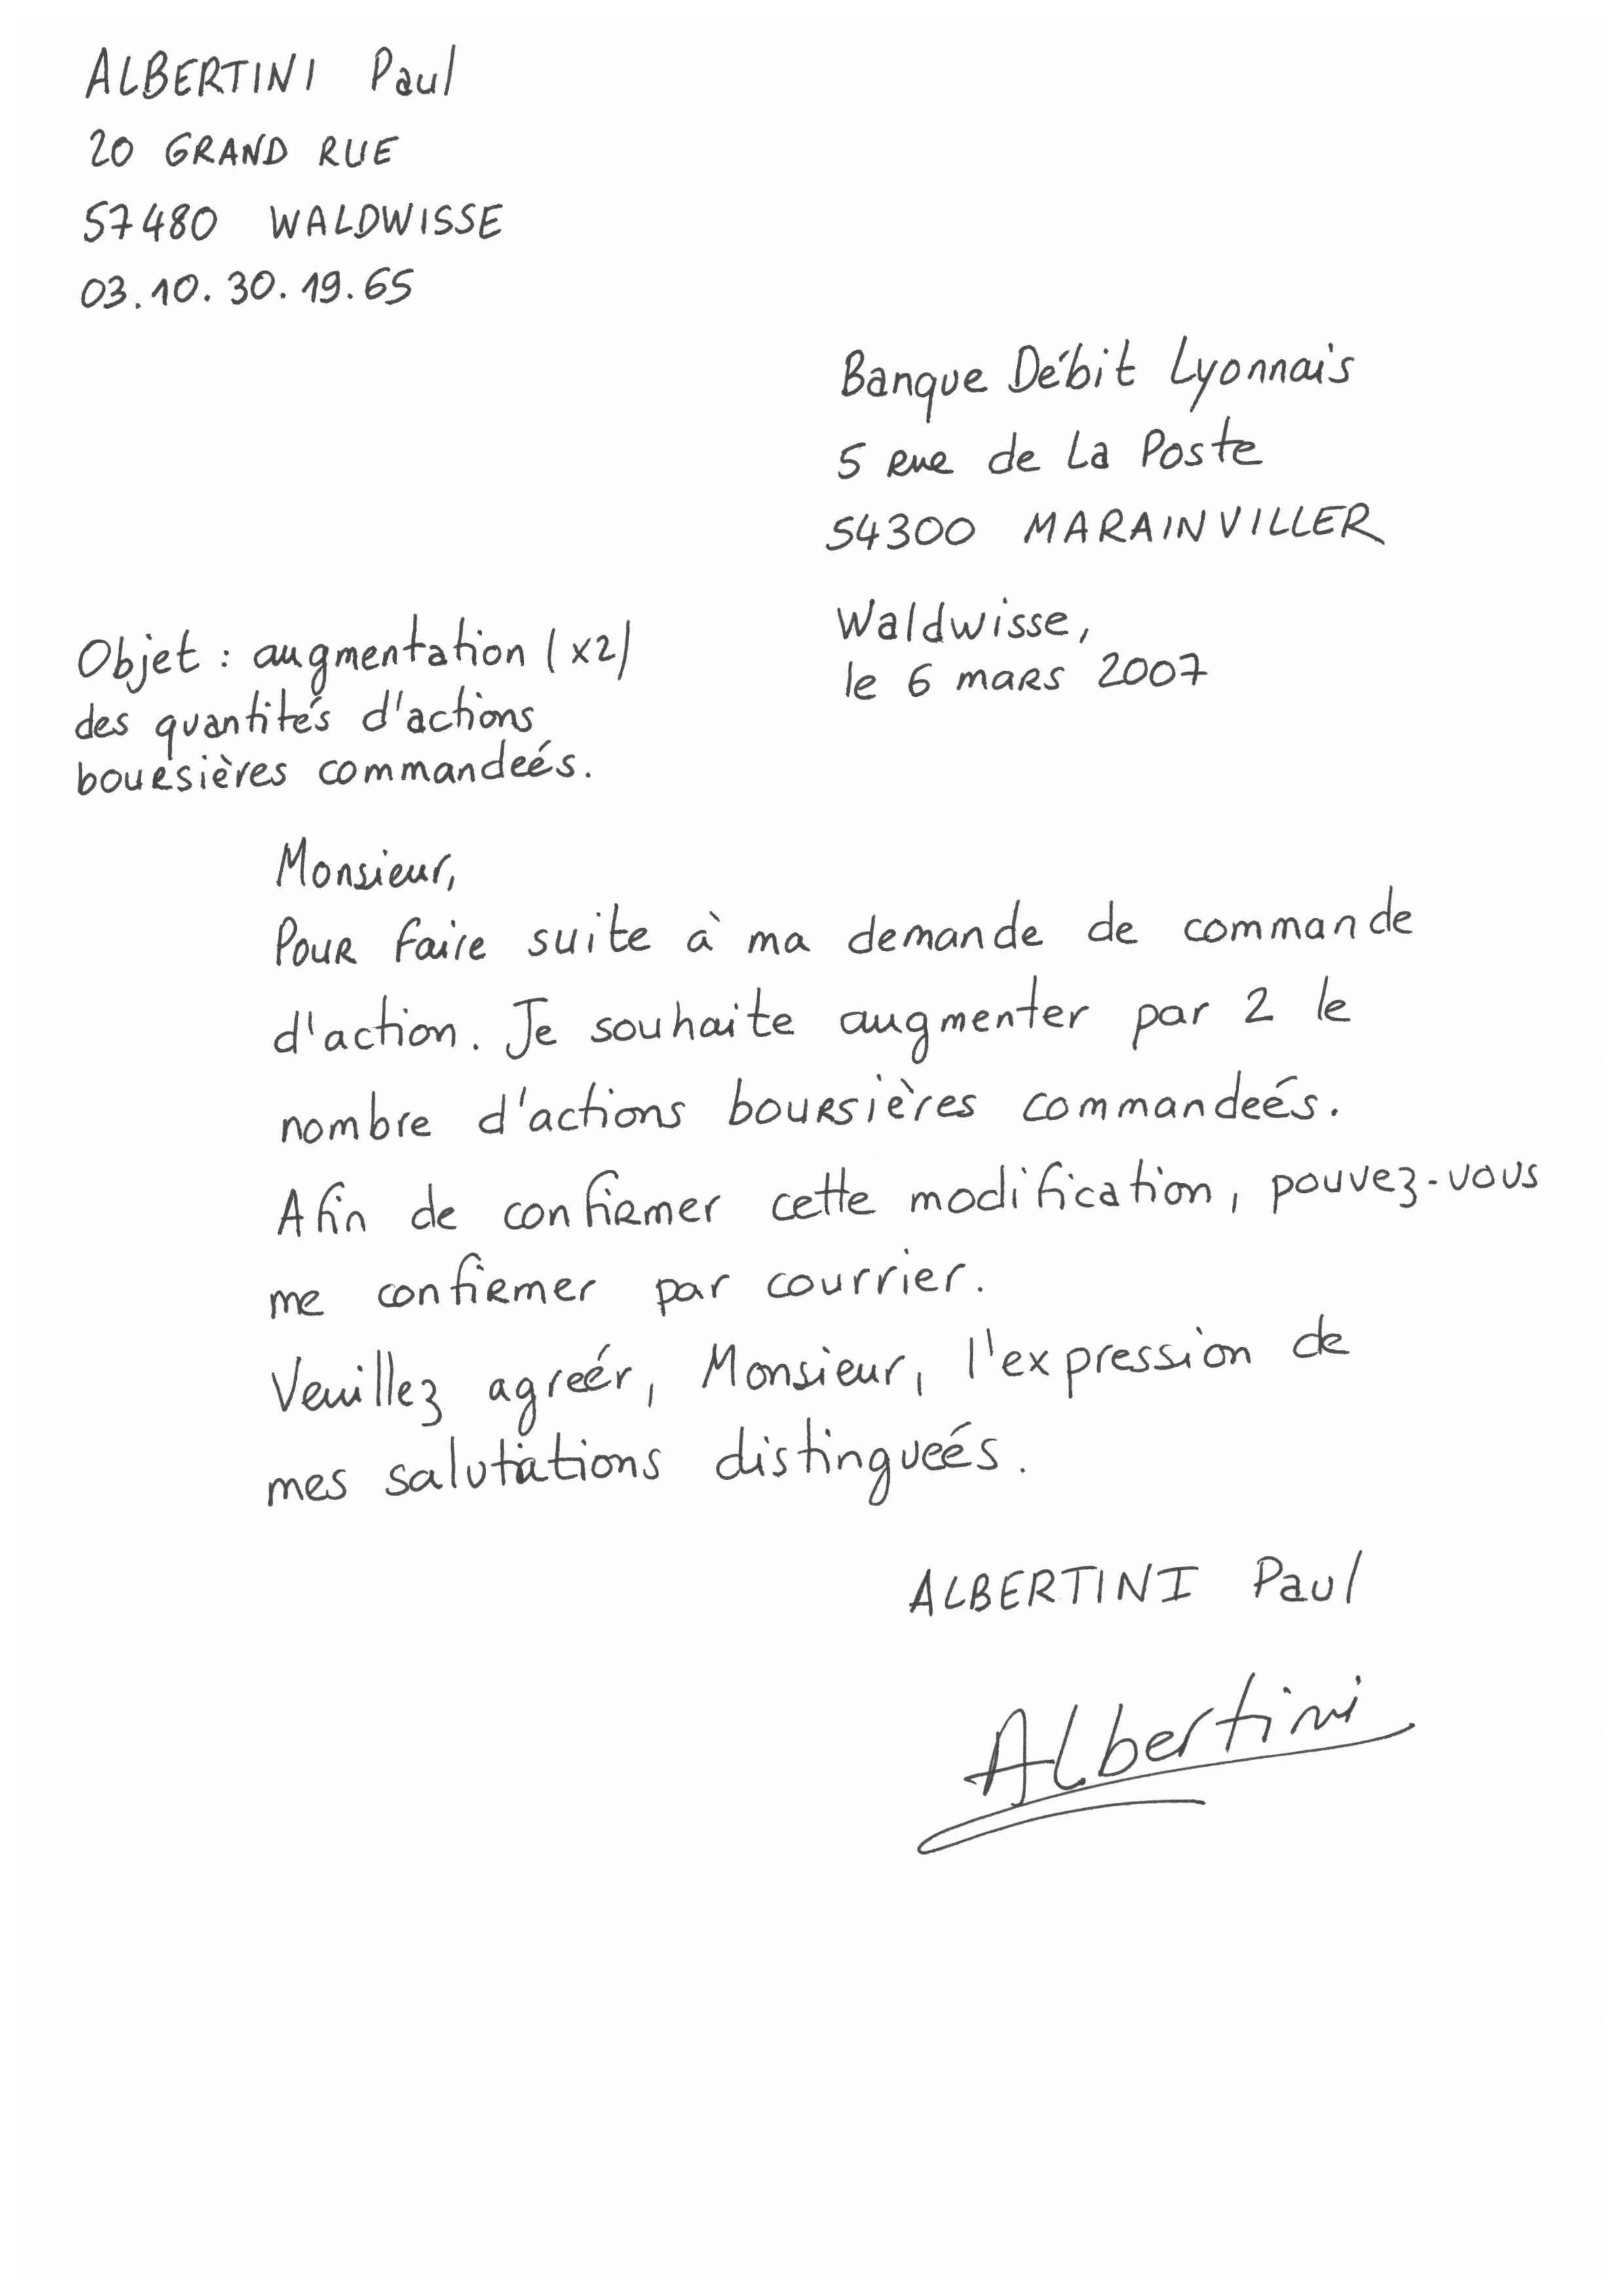 ALBERTINI Paul
20 GRAND RUE
57480 WALDWISSE
03.10.30.19.65
Banque Débit Lyonnais
5 rue de La Poste
54300 MARAINVILLER
Waldwisse,
le 6 mars 2007
Objet : augmentation (x2)
des quantités d'actions
boursières commandées.
Monsieur,
Pour faire suite à ma demande de commande
d'action. Je souhaite augmenter par 2 le
nombre d'actions boursières commandées.
Afin de confirmer cette modification, pouvez-vous
me confirmer par courrier.
Veuillez agréér, Monsieur, l'expression de
mes salutations distinguées.
ALBERTINI Paul
Albertini